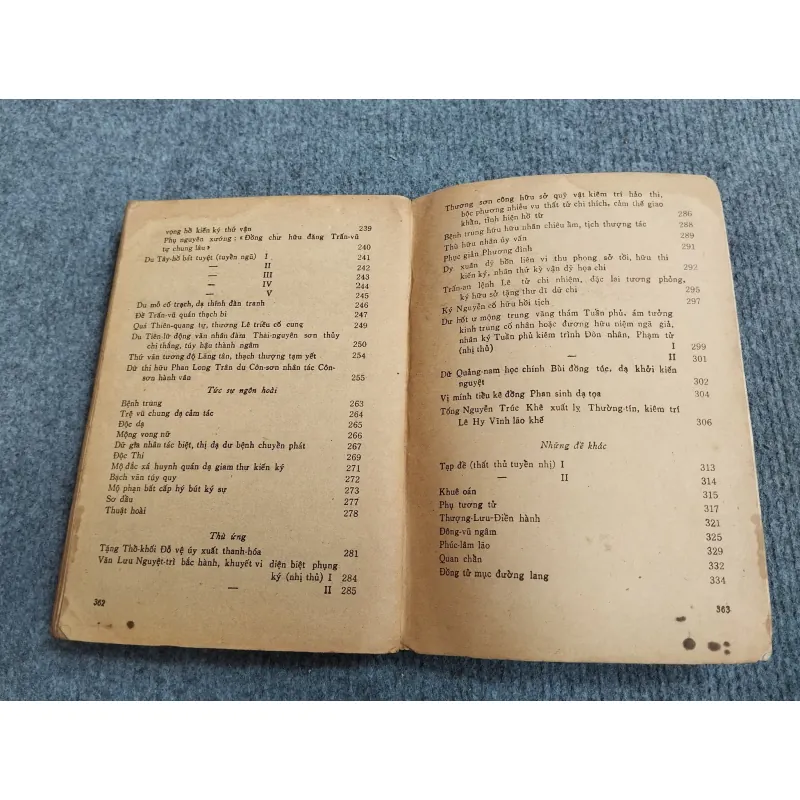 vọng hồ kiến ký thử vận 239
Phụ nguyên xướng : « Đồng chư hữu đăng Trấn-vũ
tự chung lâu » 240
Du Tây-hồ bát tuyệt (tuyển ngũ) I 241
— II 242
— III 243
— IV 244
— V 245
Du mỗ cố trạch, dạ thính đàn tranh 246
Đề Trấn-vũ quán thạch bi 247
Quá Thiên-quang tự, thương Lê triều cố cung 249
Du Tiên-lữ động văn nhân đàm Thái-nguyên sơn thủy
chi thắng, túy hậu thành ngâm 250
Thứ vãn tương độ Lãng tân, thạch thượng tạm yết 254
Dữ thi hữu Phan Long Trân du Côn-sơn nhân tác Côn-
sơn hành vân 255
Tức sự ngôn hoài
Bệnh trung 263
Trệ vũ chung dạ cảm tác 264
Độc dạ 265
Mộng vong nữ 266
Dữ gia nhân tác biệt, thị dạ dư bệnh chuyển phát 267
Độc Thi 269
Mộ đắc xá huynh quán dạ giam thư kiến ký 271
Bạch vân túy quy 272
Mộ phạn bất cấp hý bút ký sự 273
Sơ đầu 277
Thuật hoài 278
Thù ứng
Tặng Thổ-khối Đỗ vệ úy xuất thanh-hóa 281
Văn Lưu Nguyệt-trì bắc hành, khuyết vi diện biệt phụng
ký (nhị thủ) I 284
— II 285
362
Thương sơn công hữu sở quỹ vật kiêm trí hảo thi,
bộc phương nhiễu vu thất tử chi thích, cảm thế giao
khẩn, tình hiện hồ từ 286
Bệnh trung hữu hữu nhân chiêu ẩm, tịch thượng tác 288
Thù hữu nhân úy vấn 289
Phục giản Phương đình 291
Dy xuân dỹ bồn liên vi thu phong sở tồi, hữu thi
kiến ký, nhân thứ kỳ vận dỹ họa chi 292
Trấn-an lệnh Lê tử chi nhiệm, đặc lai tương phỏng,
ký hữu sở tặng thư dĩ dữ chi 295
Ký Nguyễn cố hữu hồi tịch 297
Dư hốt ư mộng trung vãng thám Tuần phủ, ám tưởng
kinh trung cố nhân hoặc đương hữu niệm ngã giả,
nhân ký Tuần phủ kiêm trình Đôn nhân, Phạm tử
(nhị thủ) I 299
— II 301
Dữ Quảng-nam học chính Bùi đồng túc, dạ khởi kiến
nguyệt 302
Vị minh tiểu kê đồng Phan sinh dạ tọa 304
Tống Nguyễn Trúc Khê xuất lỵ Thường-tín, kiêm trí
Lê Hy Vĩnh lão khế 306
Những đề khác
Tạp đề (thất thủ tuyển nhị) I 313
— II 314
Khuê oán 315
Phụ tương tử 317
Thượng-Lưu-Điền hành 321
Đông-vũ ngâm 325
Phúc-lâm lão 329
Quan chẩn 332
Đồng tử mục đường lang 334
363